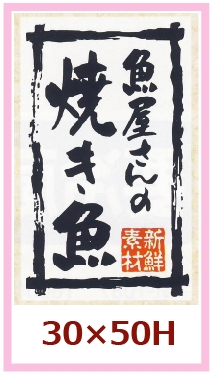 魚屋さんの
焼き魚
新鮮
素材
30×50H